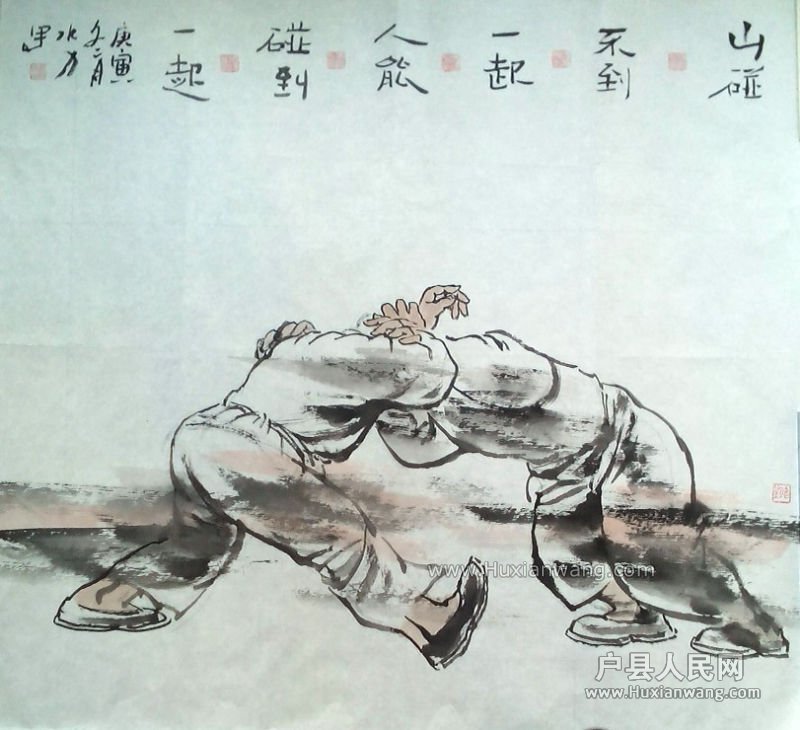 山碰
不到
一起
人能
碰到
一起
庚寅
冬二月
水力
www.Huxianwang.com
户县人民网
www.Huxianwang.com